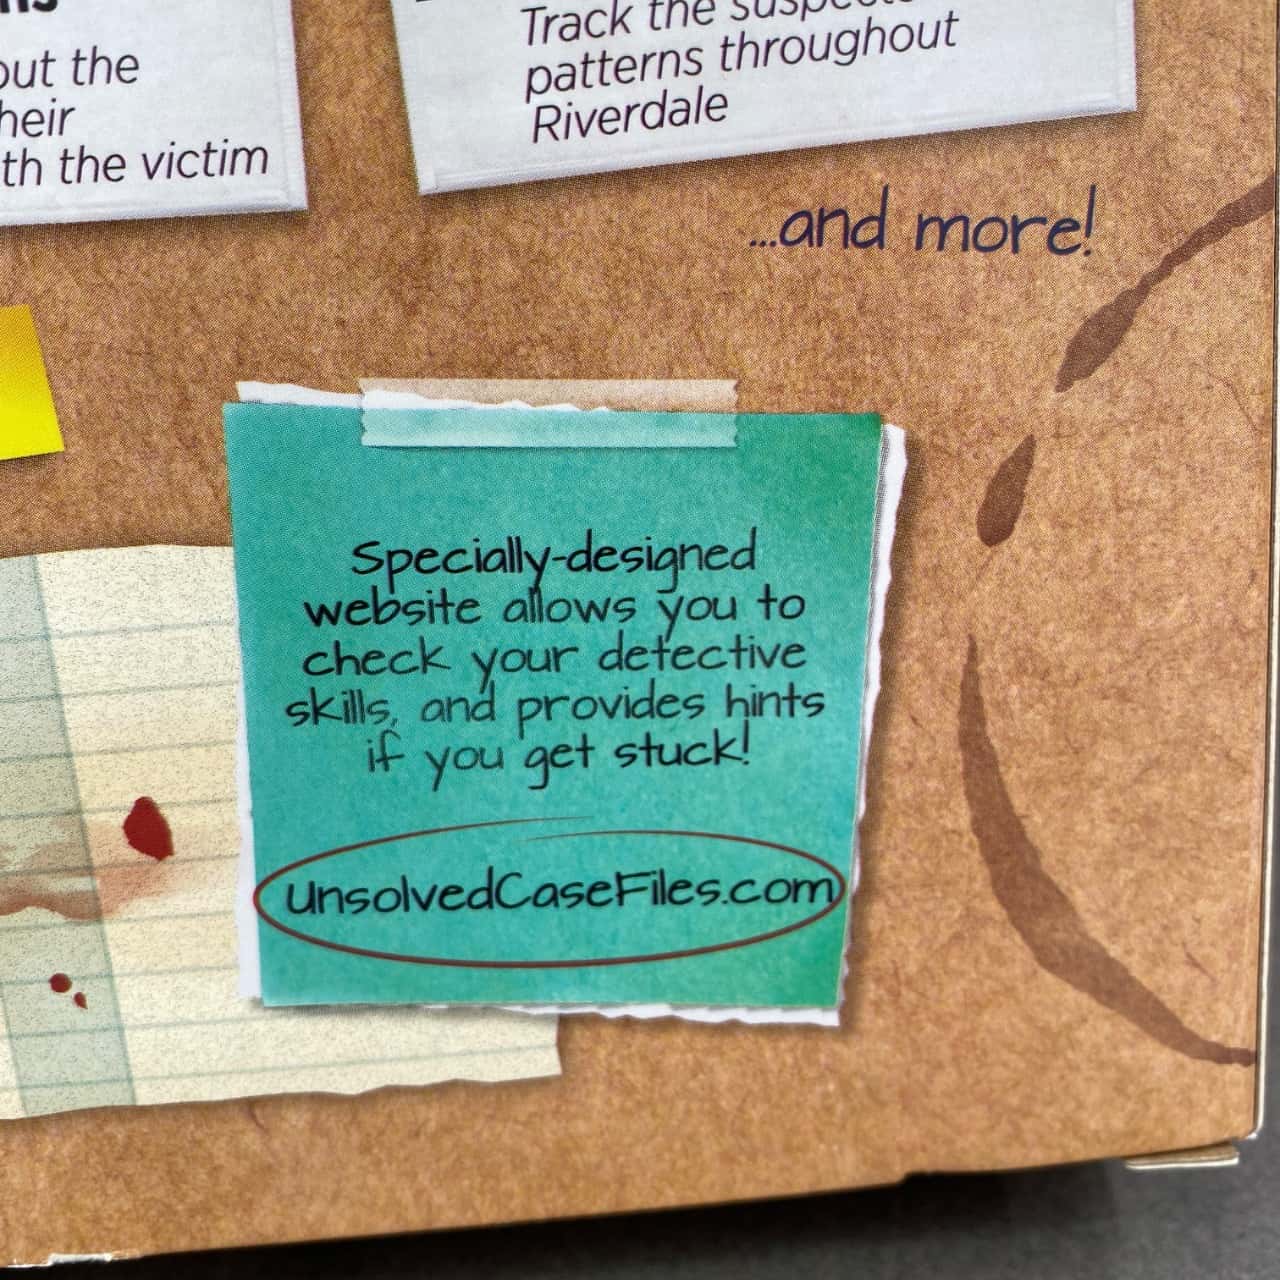 the
victim
th the victim
Track the
patterns throughout
Riverdale
...and more!
Specially-designed
website allows you to
check your detective
skills, and provides hints
if you get stuck!
UnsolvedCaseFiles.com